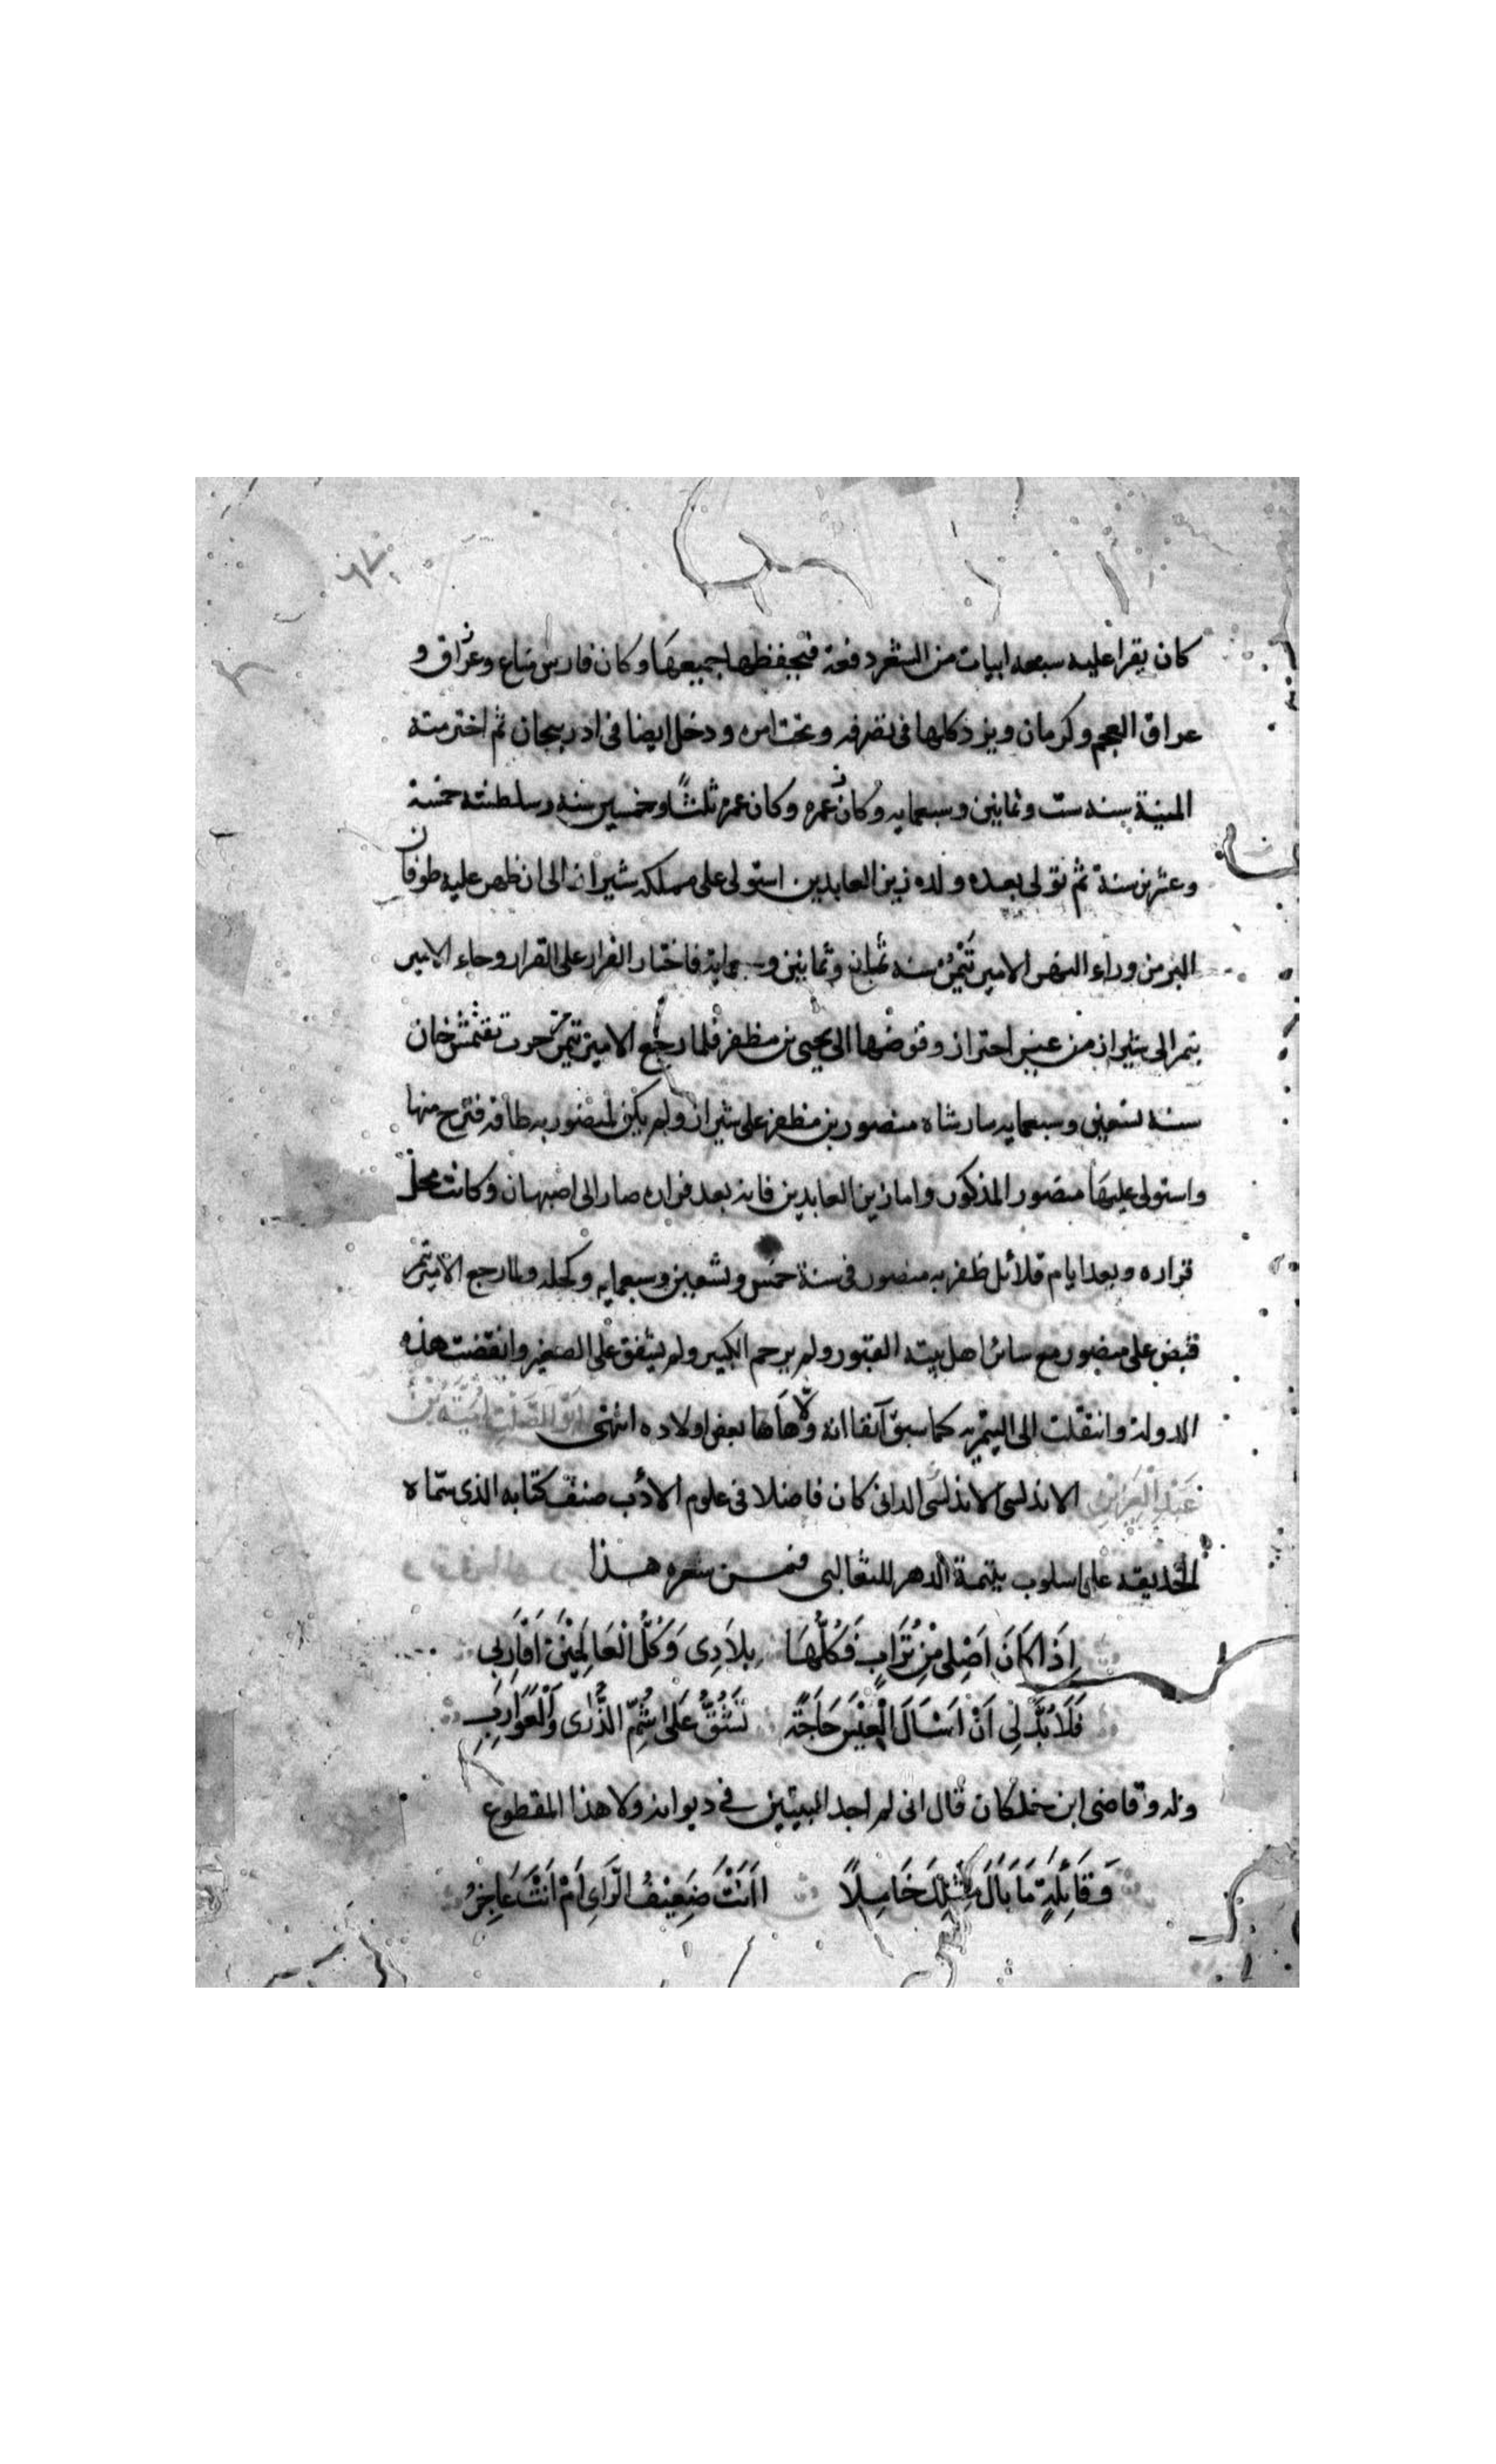 كان يقرا عليه سبعه ابيات من الشعر دفعة فيحفظها جميعها وكان فارس شاع وعراق و
عراق العجم وكرمان ويزد كلها فى تصرفه وتحت امره ودخل ايضا فى ادربيجان ثم اخترمته
المنية سنه ست وثمانين وسبعمايه وكان عمره وكان عمره ثلثًا وخمسين سنه وسلطنته خمسة
وعشرين سنة ثم تولى بعده ولده زين العابدين استولى على مملكه شيراز الى ان ظهر عليه طوفان
البر من وراء النهر الامير تَيْمُر سنه ثمان وثمانين وسبعماية فاختار الفرار على القرار وجاء الامير
تيمر الى شيراز من غير احتراز وفوضها الى يحيى بن مظفر فلما رجع الامير تيمر لحرب تقتمش خان
سنة تسعين وسبعمايه سار شاه منصور بن مظفر على شيراز ولم يكن لمنصور به طاقه فتزح منها
واستولى عليها منصور المذكور واما زين العابدين فانه بعد فراره صار الى اصبهان وكانت محل
قراره وبعد ايام قلائل ظفر به منصور فى سنة خمس وتسعين وسبعمايه وكحله ولما رجع الامير تيمر
قبض على منصور مع سائر اهل بيته القبور ولم يرحم الكبير ولم يشفق على الصغير وانقضت هذه
الدولة وانتقلت الى التيمريه كما سبق آنفا انه ولّاها بعض اولاده انتهى ابو الصلت اميّة بن
عبد العزيز الاندلسى الاندلسى الدانى كان فاضلا فى علوم الادب صنف كتابه الذى سماه
الحديقه على اسلوب يتيمة الدهر للثعالبى فمن شعره هذا
اِذَا كَانَ اَصْلِى مِنْ تُرَابٍ فَكُلُّهَا بِلَادِى وَكُلُّ الْعَالَمِيْنَ اَقَارِبِى
فَلَا بُدَّ لِى اَنْ اَسْاَلَ الْعِيْسَ حَاجَةً تَشُقُّ عَلَى شُمِّ الذُّرَى وَالْغَوَارِبِ
وله وقاضى ابن خلكان قال انى لم اجد البيتين فى ديوانه ولا هذا المقطوع
وَقَائِلَةٍ مَا بَالَ مِثْلِكَ خَامِلًا ااَنْتَ ضَعِيْفُ الرَّاىِ اَمْ اَنْتَ عَاجِزُ